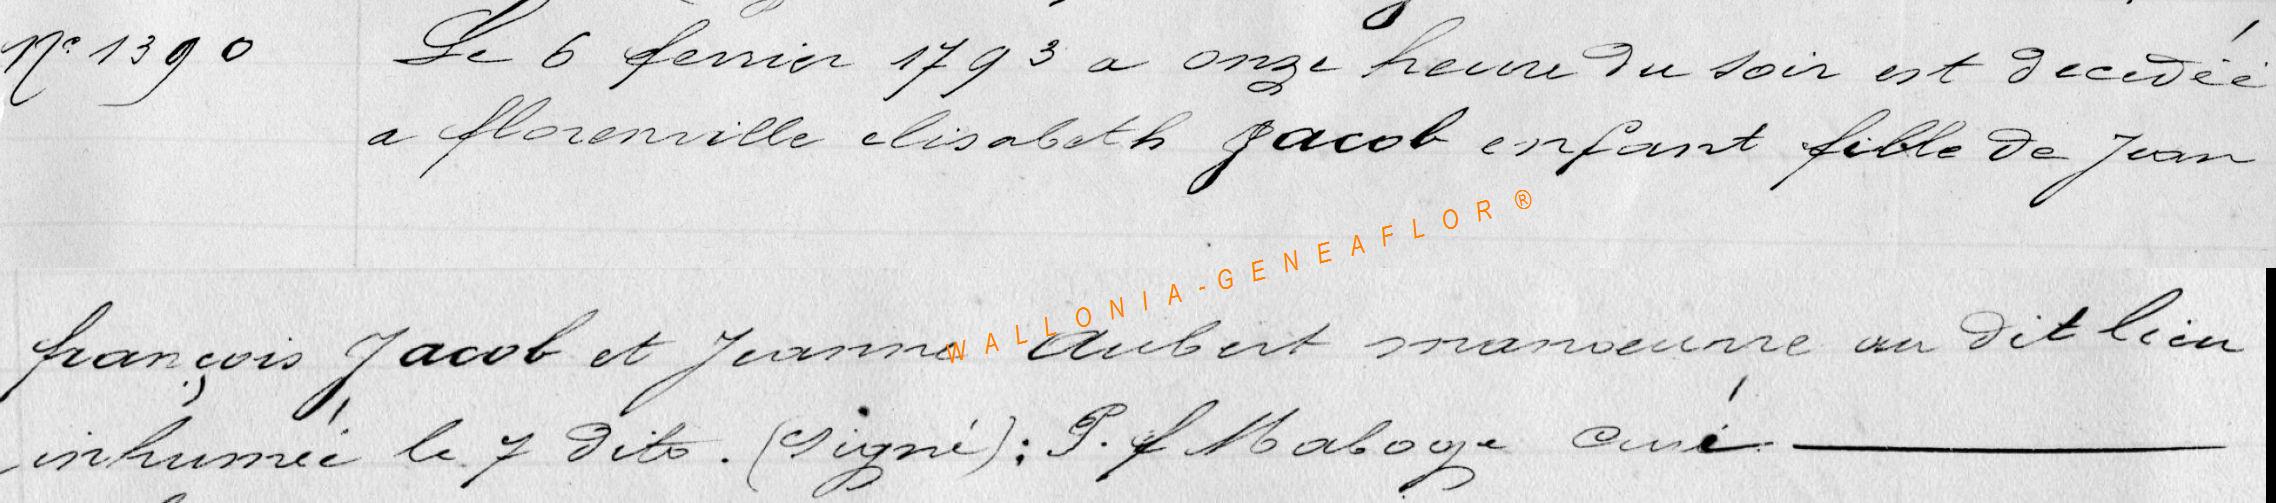 N° 1390 Le 6 fevrier 1793 a onze heure du soir est decedéé
a florenville elisabeth Jacob enfant fille de Jean
WALLONIA-GENEAFLOR®
françois Jacob et Jeanne Aubert manoeuvre au dit lieu
inhuméé le 7 dito. (signé): P. f Maboge Curé